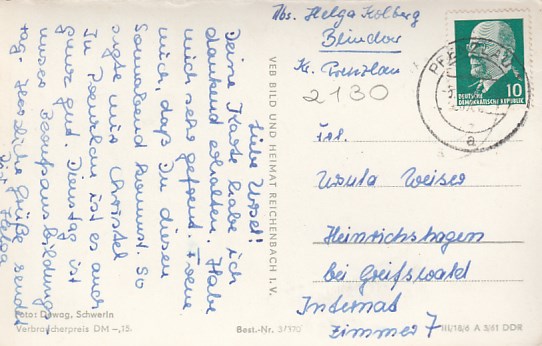 Abs. Helga Kolberg
Blindow
Kr. Prenzlau
2130
PRENZLAU
10
DEUTSCHE
DEMOKRATISCHE REPUBLIK
a
Liebe Ursel!
Deine Karte habe ich
dankend erhalten. Habe
mich sehr gefreut. Freue
mich, daß Du diesen
Sonnabend kommst. So
sagte mir Christel
In Prenzlau ist es auch
ganz gut. Dienstag ist
unser Berufsausbildungs-
tag. Herzliche Grüße sendet
Helga
VEB BILD UND HEIMAT REICHENBACH I. V.
Frl.
Ursula Weiser
Heinrichshagen
bei Greifswald
Internat
Zimmer 7
Foto: Dewag, Schwerin
Verbraucherpreis DM -,15.
Best.-Nr. 3/370
III/18/6 A 5/61 DDR